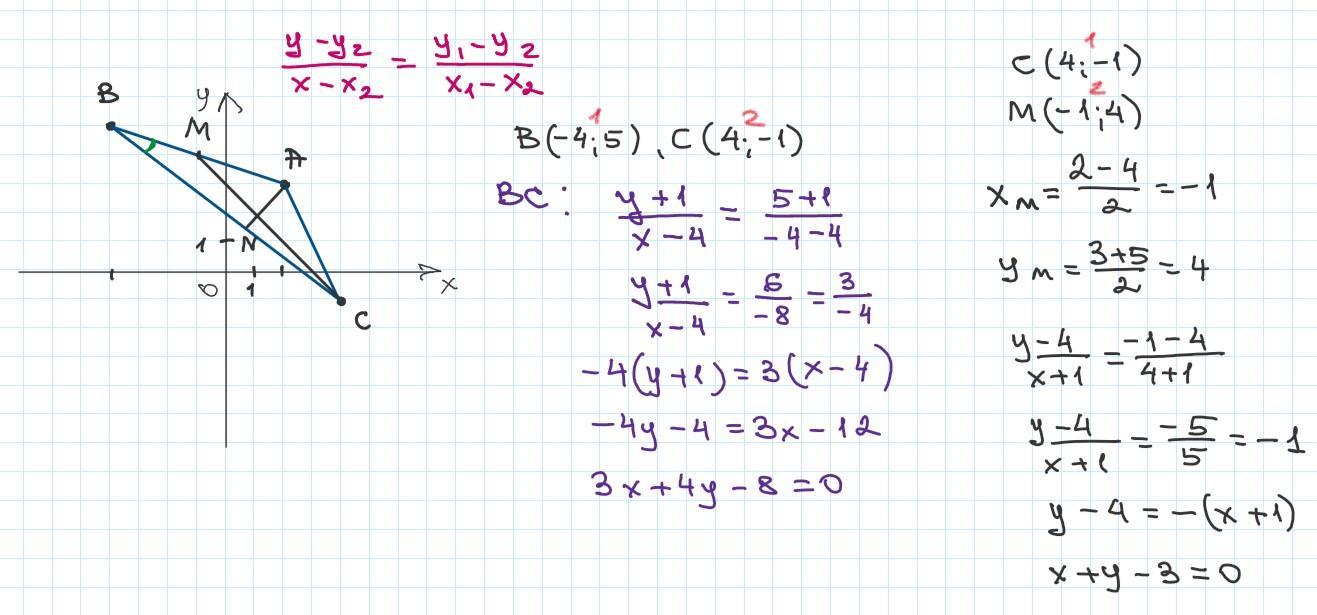 y - y₂ / x - x₂ = y₁ - y₂ / x₁ - x₂
B
y
M
A
1
N
0
1
x
C
1 2
B(-4;5), C(4;-1)
BC: y+1 / x-4 = 5+1 / -4-4
y+1 / x-4 = 6 / -8 = 3 / -4
-4(y+1) = 3(x-4)
-4y - 4 = 3x - 12
3x + 4y - 8 = 0
1
C(4;-1)
2
M(-1;4)
x_M = 2-4 / 2 = -1
y_M = 3+5 / 2 = 4
y-4 / x+1 = -1-4 / 4+1
y-4 / x+1 = -5 / 5 = -1
y - 4 = -(x+1)
x + y - 3 = 0